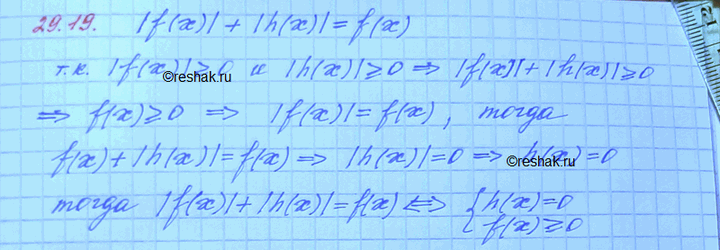 29.19. |f(x)| + |h(x)| = f(x)
т.к. |f(x)| ≥ 0 и |h(x)| ≥ 0 ⇒ |f(x)| + |h(x)| ≥ 0
©reshak.ru
⇒ f(x) ≥ 0 ⇒ |f(x)| = f(x), тогда
f(x) + |h(x)| = f(x) ⇒ |h(x)| = 0 ⇒ h(x) = 0
©reshak.ru
тогда |f(x)| + |h(x)| = f(x) ⇔ { h(x) = 0
f(x) ≥ 0